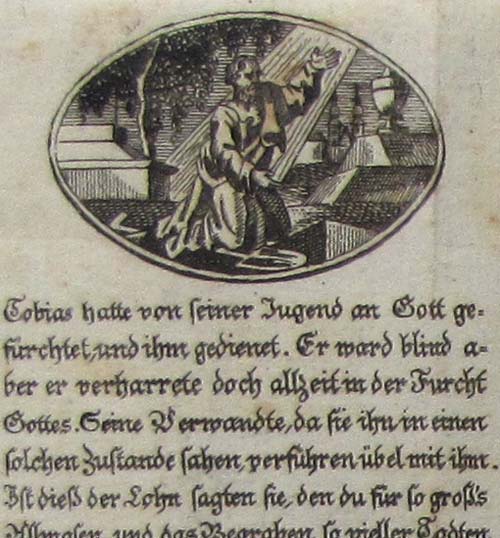 Tobias hatte von seiner Jugend an Gott ge-
fürchtet, und ihm gedienet. Er ward blind a-
ber er verharrete doch allzeit in der Furcht
Gottes. Seine Verwandte, da sie ihn in einen
solchen Zustande sahen, verführen übel mit ihm.
Ist dieß der Lohn sagten sie, den du für so groß's
Allmosen, und das Begraben so vieller Todten